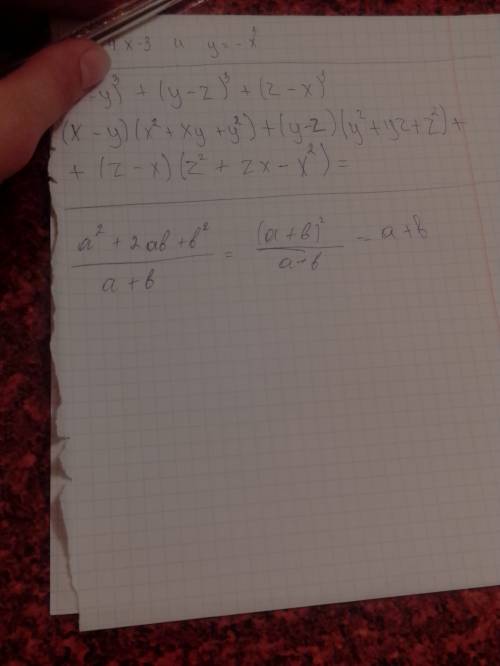 x-3 и y=-x
-y)³ + (y-z)³ + (z-x)³
(x-y)(x²+xy+y²)+(y-z)(y²+yz+z²)+
+ (z-x)(z²+zx-x²)=
a²+2ab+b² / a+b = (a+b)² / a+b = a+b